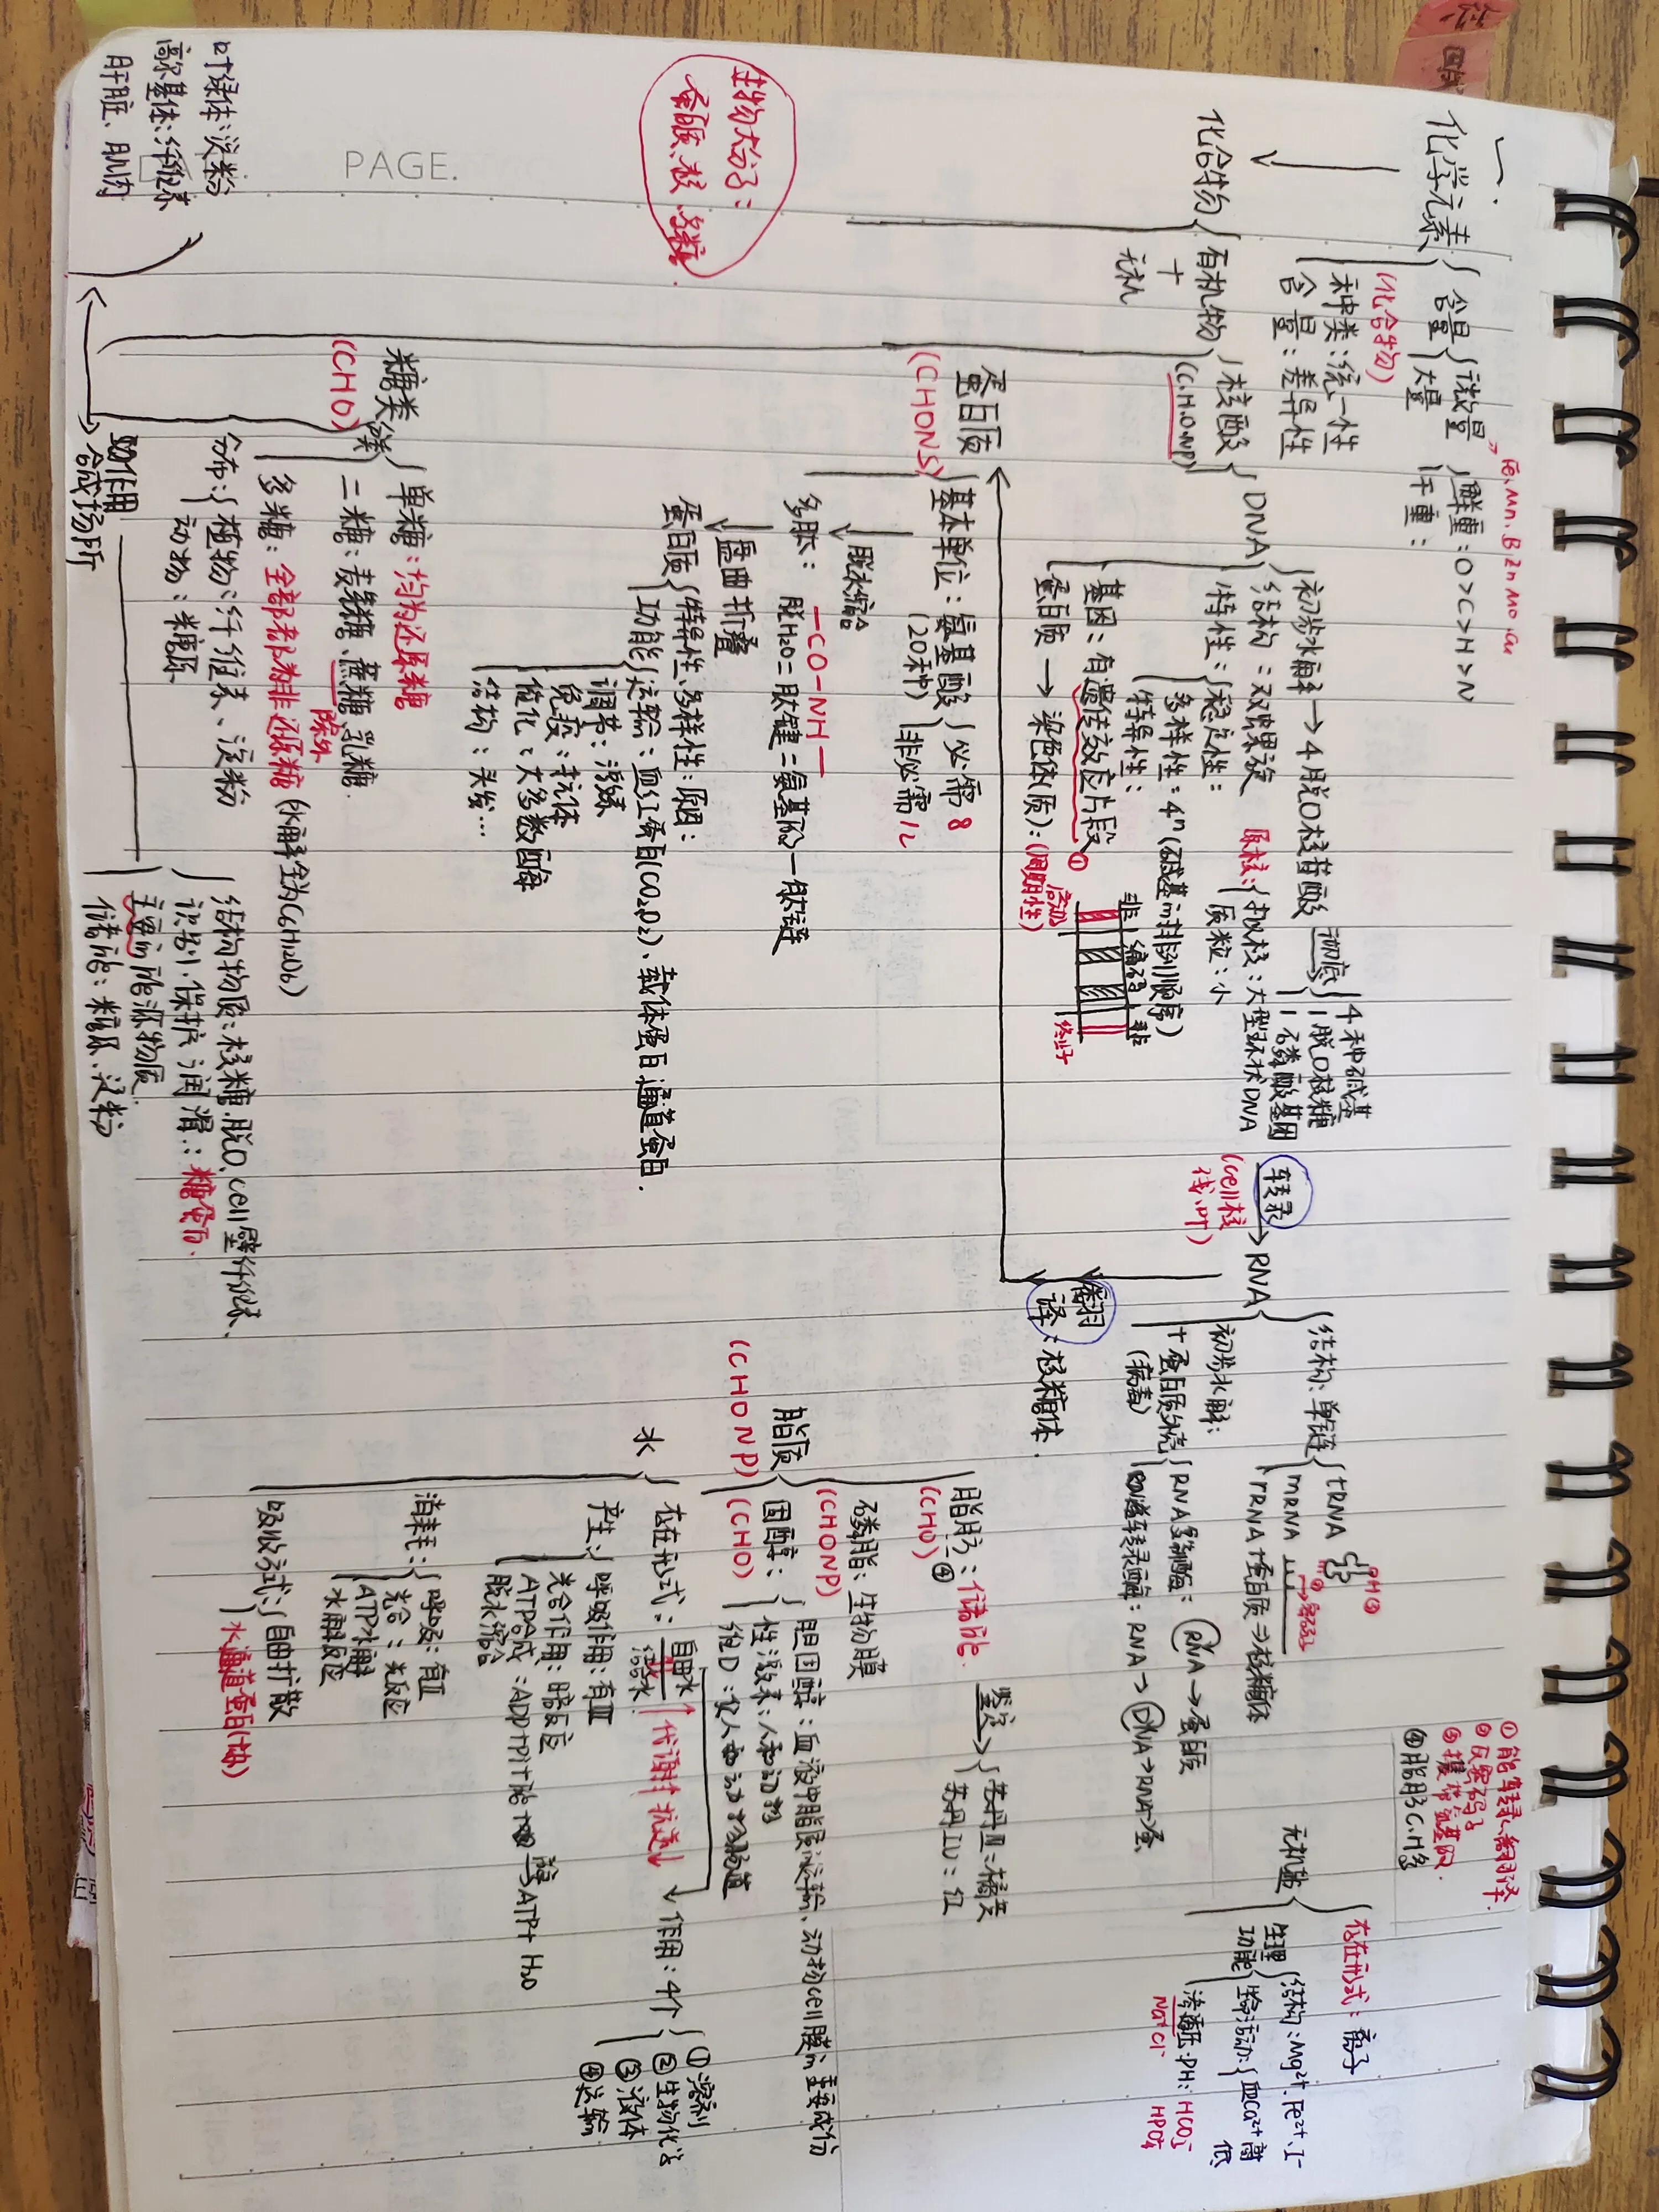 一、
化学元素
含量
微量
Fe、Mn、B Zn Mo Cu
大量
鲜重：O>C>H>N
干重：
(化合物)
种类：统一性
含量：差异性
化合物
有机物
+
无机
核酸
(C.H.O.N.P)
DNA
初步水解→4脱O核苷酸
彻底
4种碱基
1脱O核糖
1磷酸基团
结构：双螺旋
原核：
拟核：大型环状DNA
质粒：小
特性：
稳定性：
多样性：4ⁿ(碱基的排列顺序)
特异性：
基因：有遗传效应片段①
非 编码 非
启动
终止子
蛋白质→染色体(质)：(周期性)
转录
(cell核
线、叶)
RNA
结构：单链
tRNA
OH③
mRNA
②→密码子
rRNA+蛋白质⇒核糖体
初步水解：
+蛋白质外壳
(病毒)
RNA复制酶：RNA→蛋白质
逆转录酶：RNA→DNA→RNA→蛋
翻译：核糖体.
①能转录、翻译.
②反密码子
③携带氨基酸.
④脂肪C.H多
无机盐
存在形式：离子
生理功能
结构：Mg²⁺、Fe²⁺、I⁻
生命活动：
血Ca²⁺高
低
渗透压：PH：HCO₃⁻
Na⁺Cl⁻
HPO₄
生物大分子：
蛋白质、核、多糖
蛋白质
(CHONS)
基本单位：氨基酸
(20种)
必需8
非必需12
脱水缩合
多肽：
—CO—NH—
脱H₂O=肽键=氨基酸—肽链
盘曲折叠
蛋白质
特异性、多样性：原因：
功能
运输：血红蛋白(CO₂、O₂)、载体蛋白、通道蛋白.
调节：激素
免疫：抗体
催化：大多数酶
结构：头发…
糖类
(CHO)
分类
单糖：均为还原糖
二糖：麦芽糖、蔗糖、乳糖.
除外
多糖：全部都为非还原糖(水解全为C₆H₁₂O₆)
分布：
植物：纤维素、淀粉
动物：糖原
作用
结构物质：核糖、脱O、cell壁纤维素、
识别、保护、润滑：糖蛋白.
主要的能源物质：
储能：糖原、淀粉
合成场所
叶绿体：淀粉
高尔基体：纤维素
肝脏、肌肉
脂质
(CHONP)
脂肪：储能.
(CHO)④
鉴定
苏丹Ⅲ=橘黄
苏丹Ⅳ：红
磷脂：生物膜
(CHONP)
固醇：
(CHO)
胆固醇：血液中脂质的运输、动物cell膜的重要成份
性激素：人和动物
维D：促人和动物肠道
水
存在形式：
自由水
结合水
代谢↑抗逆↓
作用：4个
①溶剂
②生物化学
③液体
④运输
产生：
呼吸作用：有Ⅲ
光合作用：暗反应
ATP合成：ADP+Pi+能 酶→ATP+H₂O
脱水缩合
消耗：
呼吸：有Ⅱ
光合：光反应
ATP水解
水解反应
吸收方式：
自由扩散
水通道蛋白(协)
PAGE.